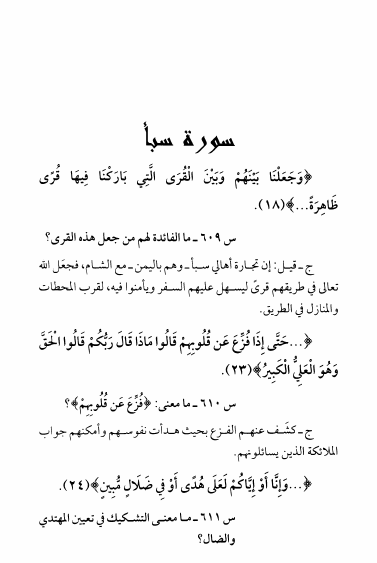 سورة سبأ
﴿وَجَعَلْنَا بَيْنَهُمْ وَبَيْنَ الْقُرَى الَّتِي بَارَكْنَا فِيهَا قُرًى
ظَاهِرَةً...﴾(١٨).
س ٦٠٩ ـ ما الفائدة لهم من جعل هذه القرى؟
ج ـ قيل: إن تجارة أهالي سبأ ـ وهم باليمن ـ مع الشام، فجعَل الله
تعالى في طريقهم قرىً ليسهل عليهم السفر ويأمنوا فيه، لقرب المحطات
والمنازل في الطريق.
﴿...حَتَّى إِذَا فُزِّعَ عَن قُلُوبِهِمْ قَالُوا مَاذَا قَالَ رَبُّكُمْ قَالُوا الْحَقَّ
وَهُوَ الْعَلِيُّ الْكَبِيرُ﴾(٢٣).
س ٦١٠ ـ ما معنى: ﴿فُزِّعَ عَن قُلُوبِهِمْ﴾؟
ج ـ كشَف عنهم الفزع بحيث هدأت نفوسهم وأمكنهم جواب
الملائكة الذين يسائلونهم.
﴿...وَإِنَّا أَوْ إِيَّاكُمْ لَعَلَى هُدًى أَوْ فِي ضَلَالٍ مُّبِينٍ﴾(٢٤).
س ٦١١ ـ ما معنى التشكيك في تعيين المهتدي
والضال؟